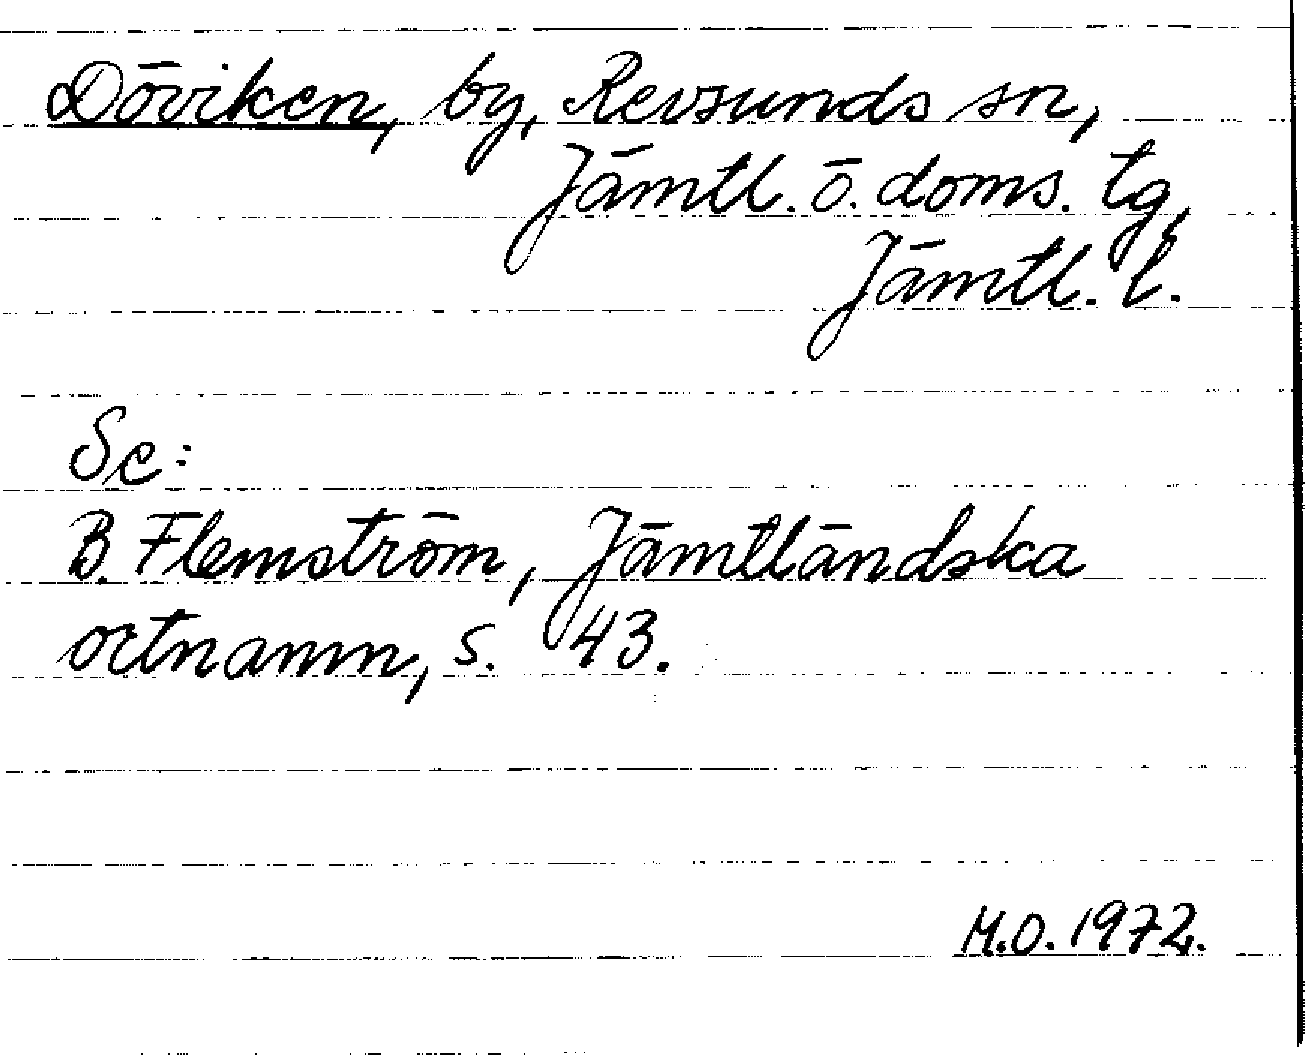 Döviken, by, Revsunds sn,
Jämtl. ö. doms. tg,
Jämtl. l.
Se:
B. Flemström, Jämtländska
ortnamn, s. 43.
M.O. 1972.